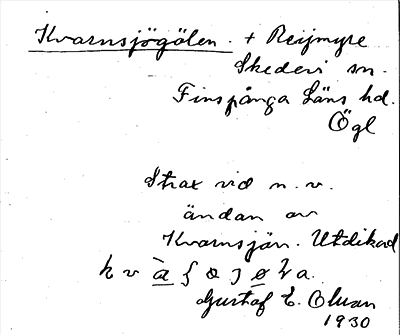 Kvarnsjögölen. + Reijmyre
Skedevi sn.
Finspånga Läns hd.
Ögl
Strax vid n.v.
ändan av
Kvarnsjön. Utdikad
Gustaf E. Olsson
1930